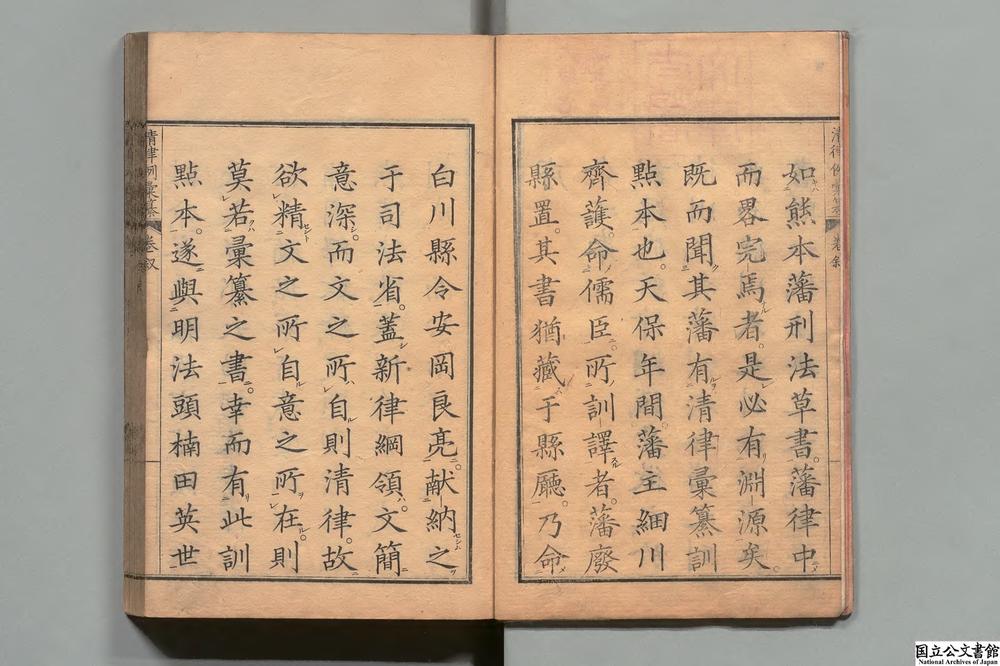 如熊本藩刑法草書。藩律中
而畧完焉者。是必有淵源矣。
既而聞其藩有清律彙纂訓
點本也。天保年間。藩主細川
齊護。命儒臣。所訓譯者。藩廢
縣置。其書猶藏于縣廳。乃命
白川縣令安岡良亮。献納之
于司法省。蓋新律綱領。文簡
意深。而文之所自。則清律。故
欲精文之所自意之所在。則
莫若彙纂之書。幸而有此訓
點本。遂與明法頭楠田英世
清律例彙纂 卷叙
国立公文書館
National Archives of Japan